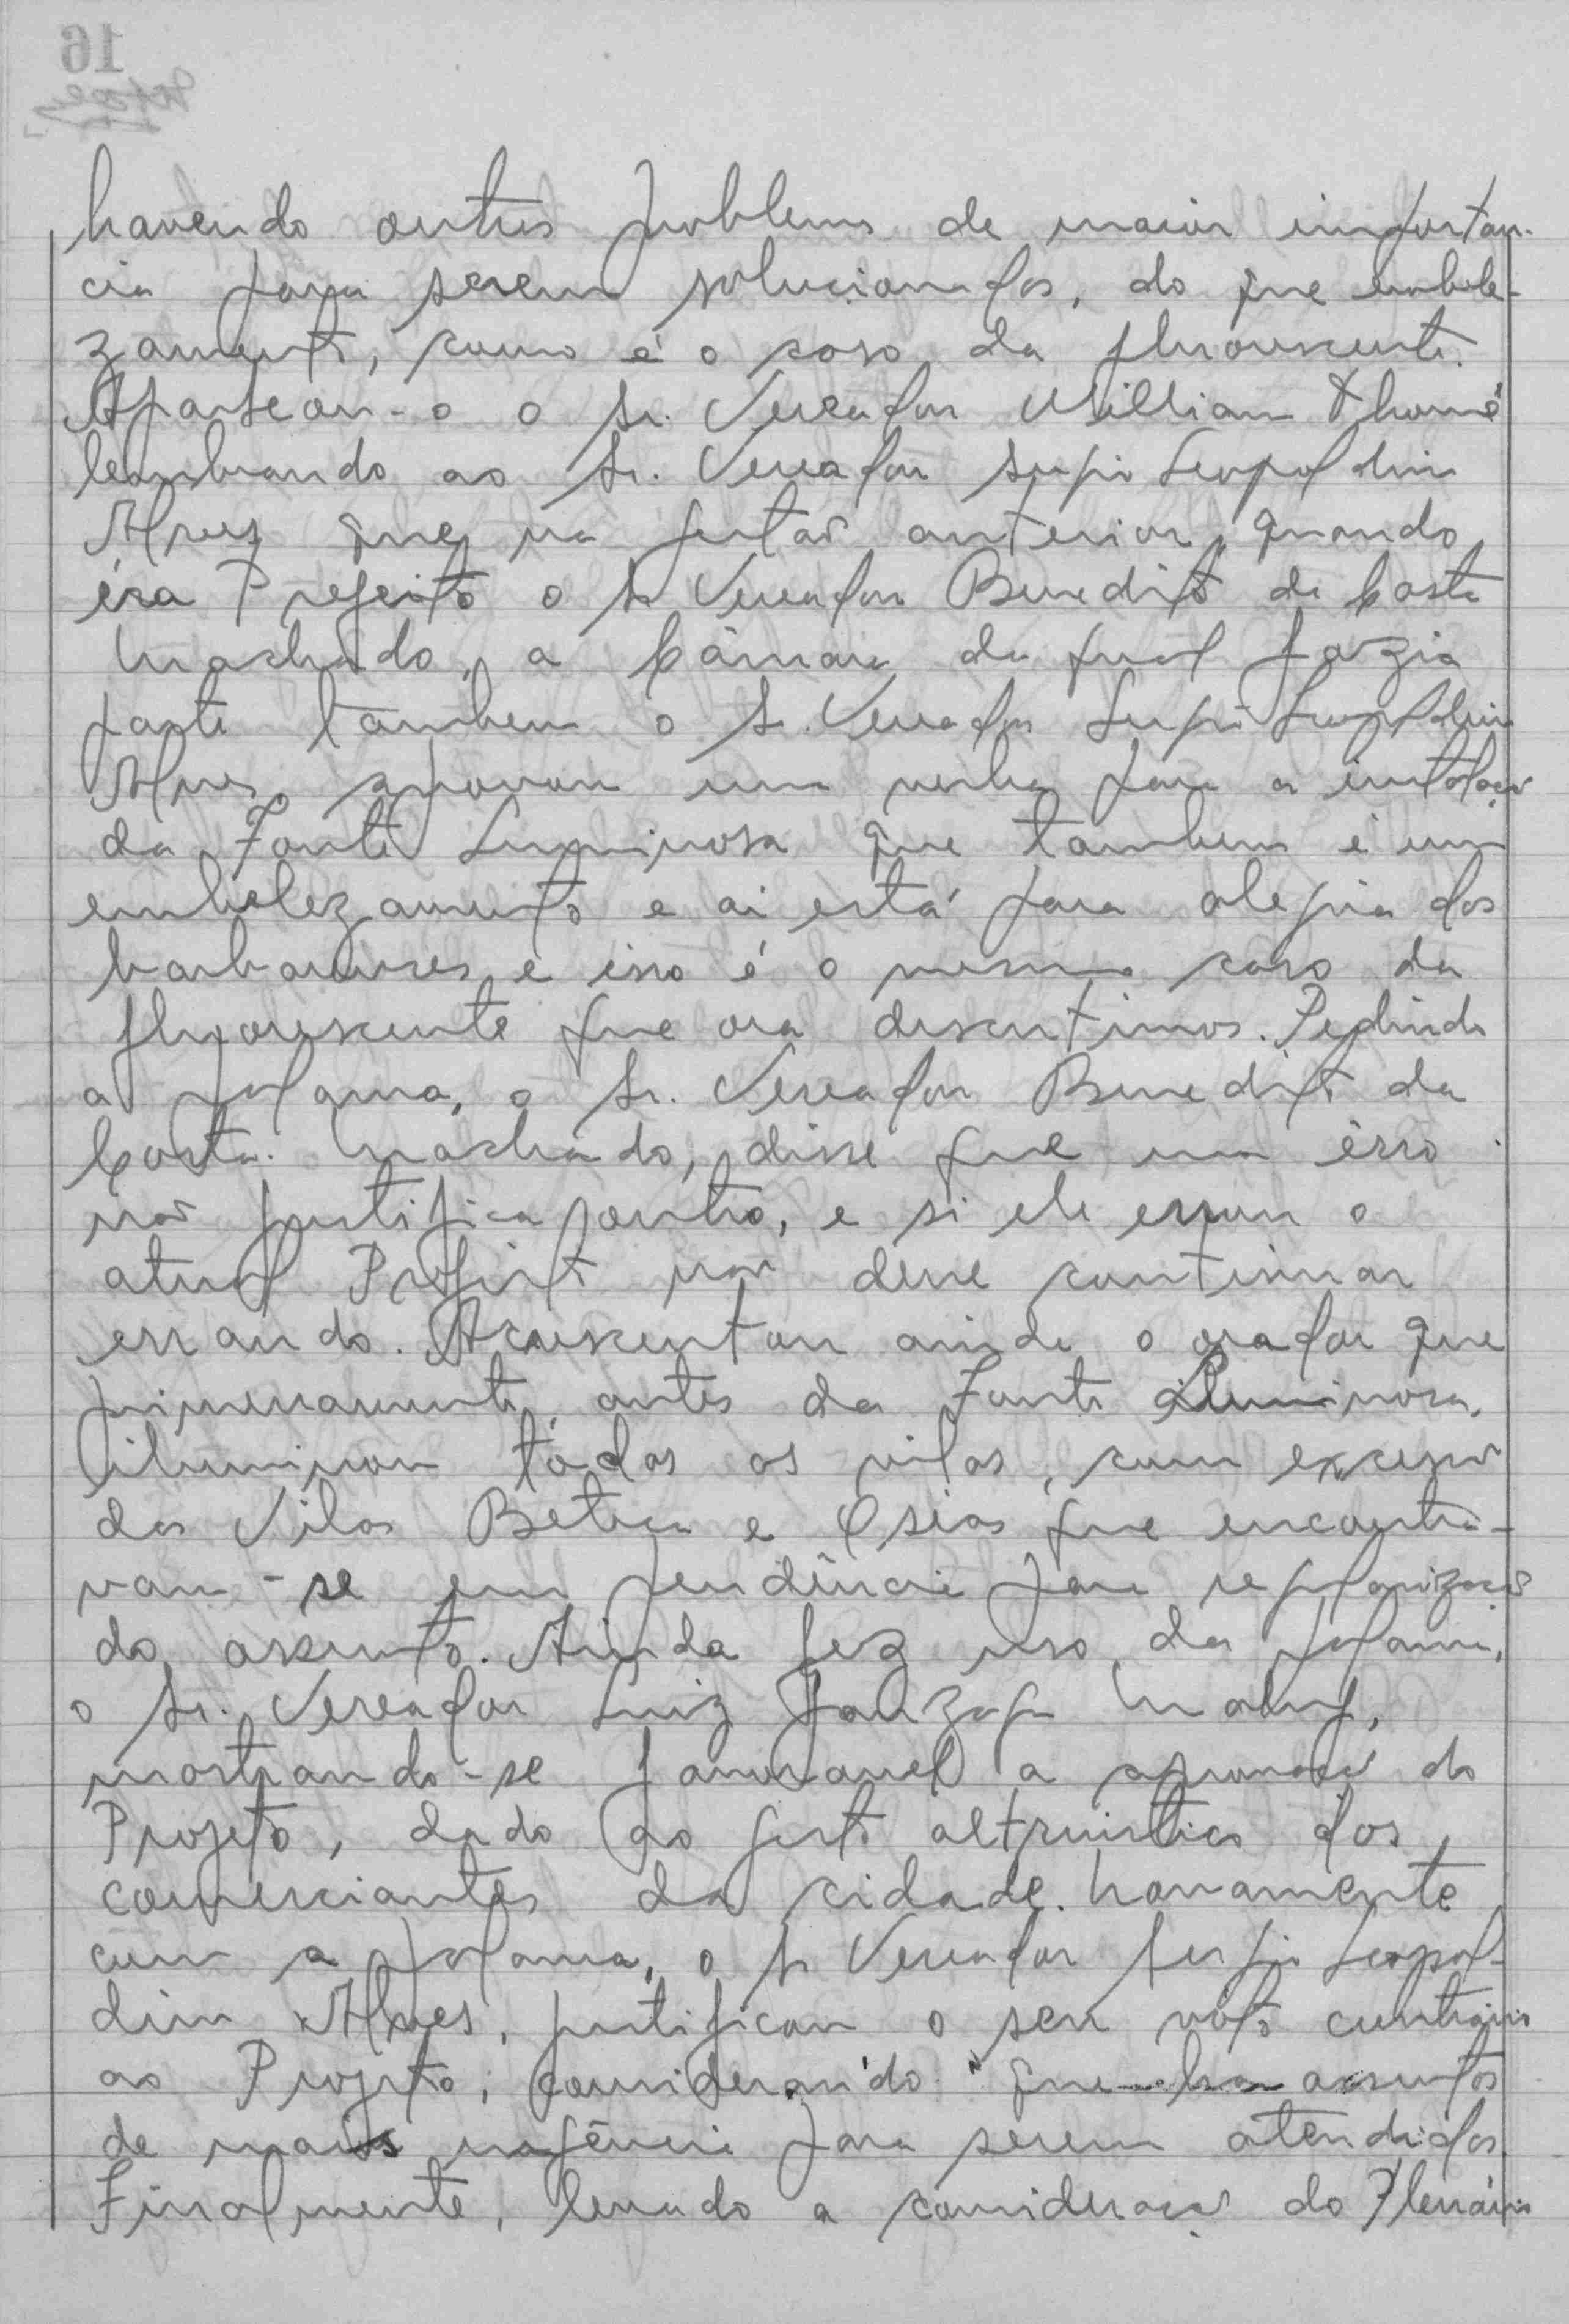 16
havendo outros problemas de maior importan-
cia para serem solucionados, do que embele-
zamento, como é o caso da fluorescente.
Aparteou-o o Sr. Vereador William Thomé
lembrando ao Sr. Vereador Sergio Leopoldino
Alves que na gestão anterior, quando
éra Prefeito o Sr Vereador Benedito da Costa
Machado, a Câmara da qual fazia
parte tambem o Sr. Vereador Sergio Leopoldino
Alves, aprovou uma verba para a instalação
da Fonte Luminosa que tambem é um
embelezamento e ai está para alegria dos
barbarenses e isso é o mesmo caso da
fluorescente que ora discutimos. Pedindo
a palavra, o Sr. Vereador Benedito da
Costa Machado, disse que um êrro
não justifica outro, e si ele errou o
atual Prefeito não deve continuar
errando. Acrescentou ainda o orador que
primeiramente, antes da Fonte Luminosa,
iluminou tôdas as vilas, com excessão
das Vilas Betica e Osias que encontra-
vam-se em pendência para regularização
do assunto. Ainda fez uso da palavra,
o Sr. Vereador Luiz Gonzaga
mostrando-se favoravel a aprovação do
Projeto, dado ao gesto altruistico dos
comerciantes da cidade. Novamente
com a palavra, o Sr Vereador Sergio Leopol-
dino Alves, justificou o seu voto contrário
ao Projeto, considerando que ha assuntos
de mais urgência para serem atendidos.
Finalmente, levado a consideração do Plenário